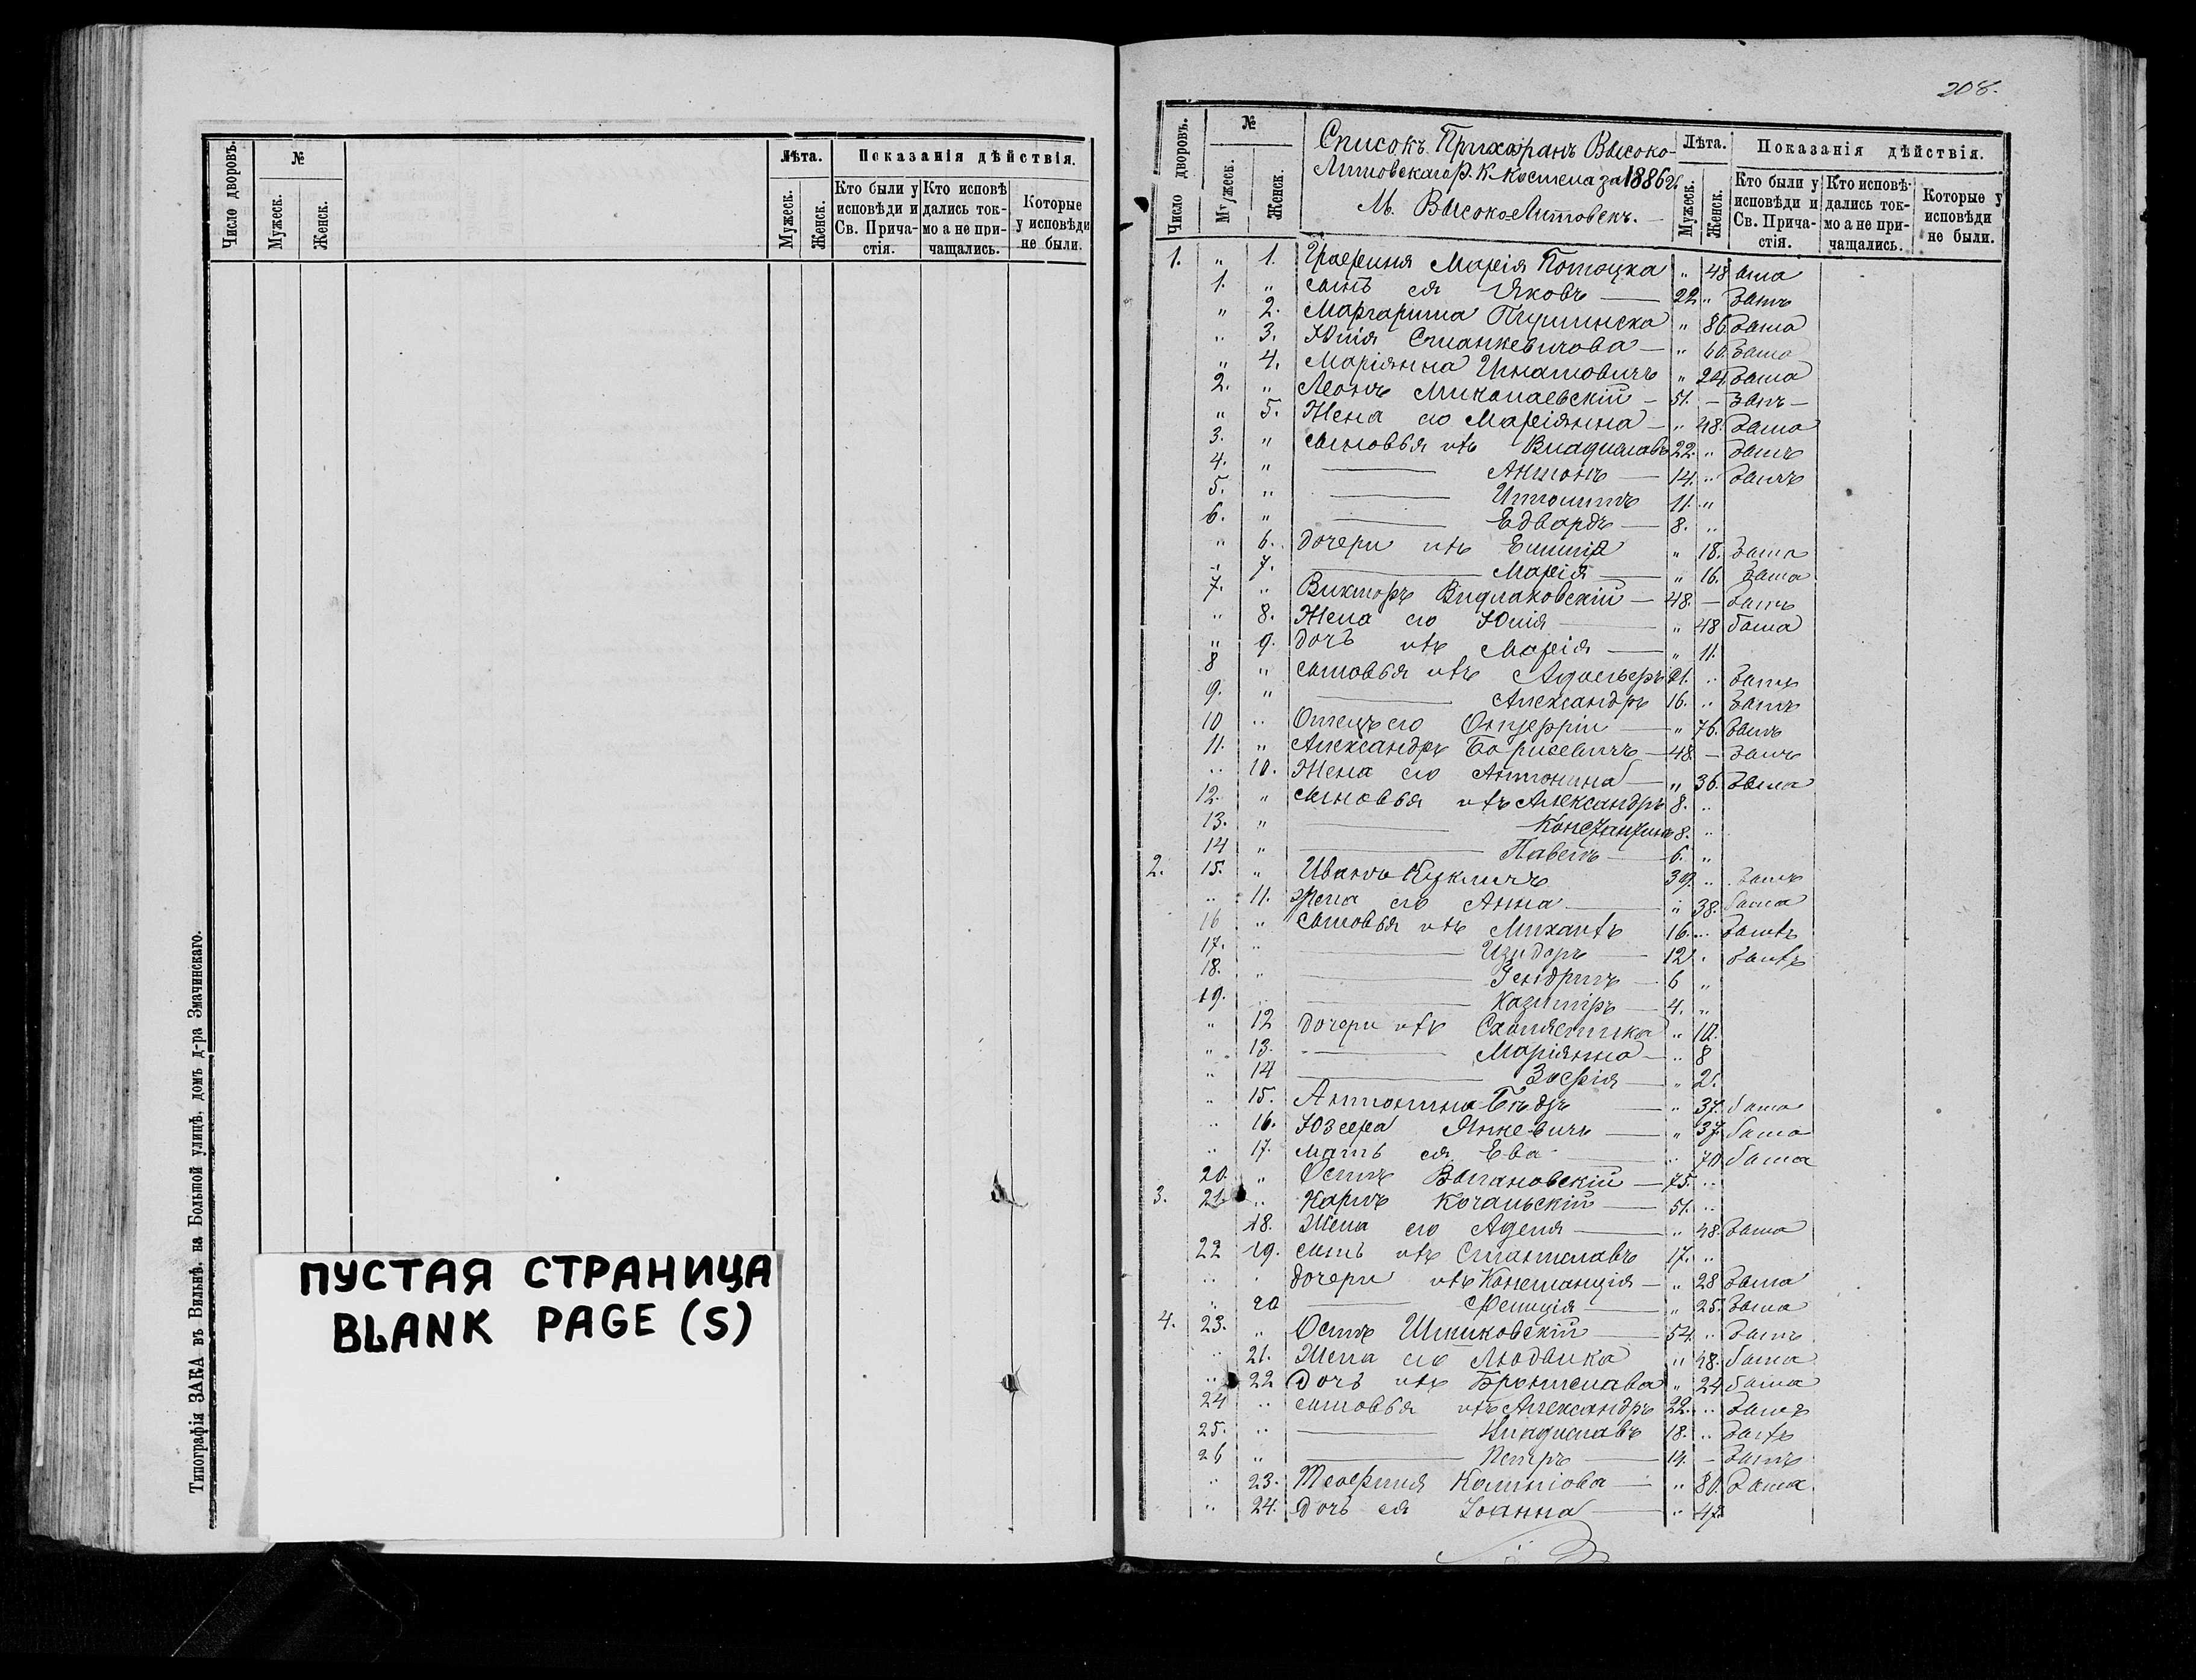 Число дворовъ.
№
Мужеск.
Женск.
Лѣта.
Мужеск.
Женск.
Показанія дѣйствія.
Кто были у исповѣди и Св. Прича-стія.
Кто исповѣ дались ток-мо а не при-чащались.
Которые у исповѣди не были.
Типографія ЗАКА въ Вильнѣ, на Большой улицѣ, домъ д-ра Змачинскаго.
ПУСТАЯ СТРАНИЦА
BLANK PAGE (S)
208.
Число дворовъ.
№
Мужеск.
Женск.
Списокъ Прихожанъ Высоко-
Литовскаго Р. К. Костела за 1886 г.
М. Высоко-Литовскъ.
Лѣта.
Мужеск.
Женск.
Показанія дѣйствія.
Кто были у исповѣди и Св. Прича-стія.
Кто исповѣ-дались ток-мо а не при-чащались.
Которые у исповѣди не были.
1. " 1. Графиня Марія Потоцка " 48 была
1. " сынъ ея Яковъ 22 " былъ
" 2. Маргарита " 86 была
" 3. Юлія Станкевичова " 60 была
" 4. Маріянна Игнатовичъ " 24 была
2. " Леонъ Миколаевскій 51. - былъ
" 5. Жена его Маріянна " 48. была
3. " сыновья ихъ Владиславъ 22. " былъ
4. " Антонъ 14. " былъ
5. " Ипполитъ 11. "
6. " Едвардъ 8. "
" 6. дочери ихъ Емилія " 18. была
" 7. Марія " 16. была
7. " Викторъ 48. - былъ
" 8. Жена его Юлія " 48 была
" 9. дочь ихъ Марія " 11.
8 " сыновья ихъ Адольфъ 21. " былъ
9. " Александръ 16. " былъ
10 " Отецъ его Онуфрій " 76. былъ
11. " Александръ Борисевичъ 48 - былъ
" 10. Жена его Антонина " 36. была
12. " сыновья ихъ Александръ 8. "
13. " Константинъ 8. "
14 " Павелъ 6. "
2. 15. " Иванъ 39. " былъ
" 11. Жена его Анна " 38. была
16 " сыновья ихъ Михаилъ 16. " былъ
17. " Изидоръ 12 " былъ
18. " Гендрикъ 6 "
19. " Казиміръ 4. "
" 12 дочери ихъ Схолястика " 10.
" 13. Маріянна " 8
" 14 Зофія " 2.
" 15. Антонина " 37. была
" 16. Юзефа Янкевичъ " 37. была
" 17. мать ея Ева " 70 была
20. " Осипъ 75. "
3. 21. " Карлъ 51. "
18. Жена его Аделя " 48. была
22 19. сынъ ихъ Станиславъ 17. "
" " дочери ихъ Констанція " 28 была
" 20 Фелиція " 25. была
4. 23. " Осипъ 54. " былъ
" 21. Жена его Людвика " 48. была
" 22 Дочь ихъ Брониславa " 24 была
24 " сыновья ихъ Александръ 22. " былъ
25. " Владиславъ 18. " былъ
26 " Петръ 14. - былъ
" 23. Теофиля " 80. была
" 24. Дочь ея Іоанна " 47.